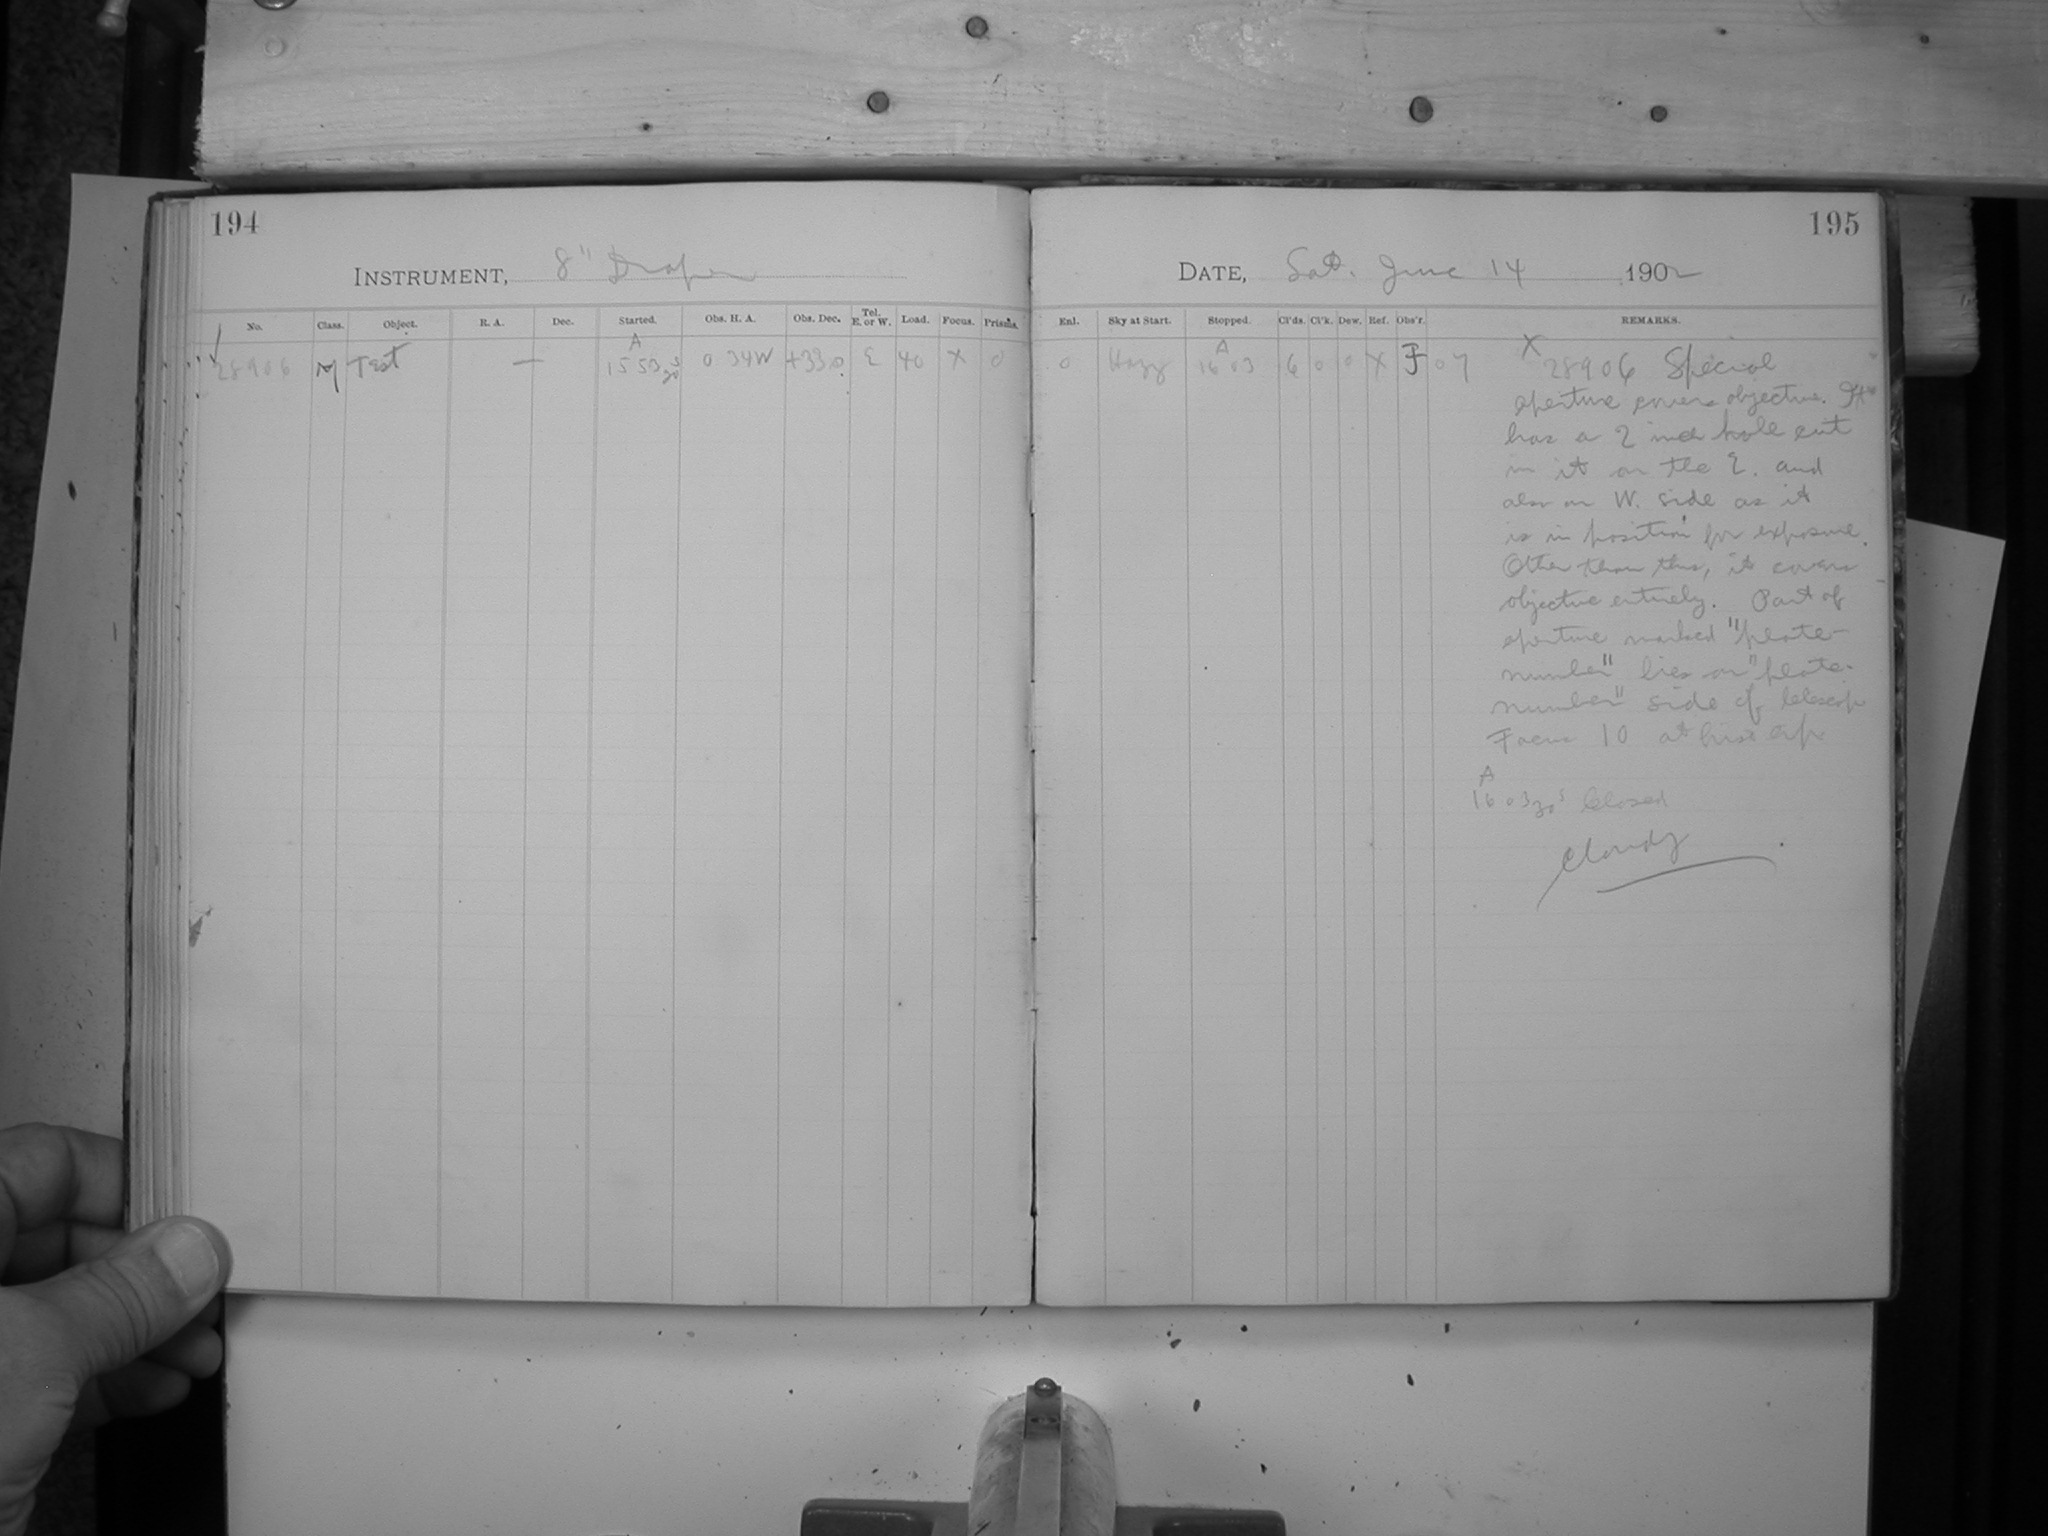 194
195
INSTRUMENT, 8" Draper
DATE, Sat. June 14 1902
No. Class. Object. R. A. Dec. Started. Obs. H. A. Obs. Dec. Tel. E. or W. Load. Focus. Prisms.
Enl. Sky at Start. Stopped. Cl'ds. Cl'k. Dew. Ref. Obs'r. REMARKS.
A
A
28906 M Test — 15 53 20s 0 34W +33.0 E 40 X 0
0 Hazy 16 03 6 0 0 X F 07
X 28906 Special
aperture covers objective. It
has a 2 inch hole cut
in it on the E. and
also on W. side as it
is in position for exposure.
Other than this, it covers
objective entirely. Part of
aperture marked "plate-
number" lies on "plate-
number" side of telescop
Focus 10 at first exp
A
16 03 20s Closed
Cloudy